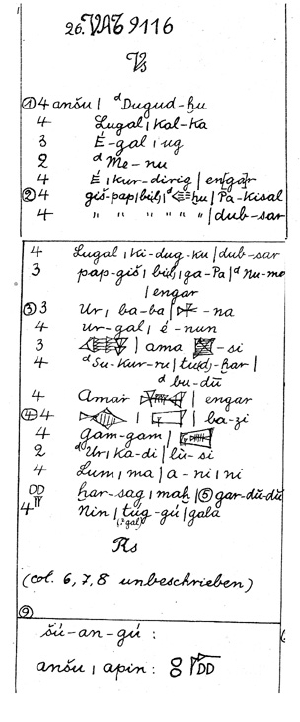 26. VAT 9116
Vs
① 4 anšu | ᵈDugud-ḫu
4 Lugal | Kal-Ka
3 É-gal | ug
2 ᵈMe-nu
4 É | kur-dirig | en[gar]
② 4 giš-pap | bil | ḫu | Pa-Kisal
4 " " " " " " | dub-sar
4 Lugal | Ki-dug-ku | dub-sar
3 pap-giš | bil | ga-Pa | ᵈNu-me
| engar
③ 3 Ur | ba-ba | -na
4 Ur-gal | é-nun
3 | ama -si
4 ᵈSu-Kur-ru | tu(d)-ḫar |
ᵈbu-dū
4 Amar | engar
④ 4 | | ba-zi
4 Gam-gam |
2 ᵈUr | Ka-di | lù-si
4 Lum | ma | a-ni | ni
DD ḫar-sag | maḫ | ⑤ gar-dū-dū
4 Nin | túg-gú | gala
(?gal)
Rs
(col. 6, 7, 8 unbeschrieben)
⑨
šú-an-gú :
anšu | apin : DD